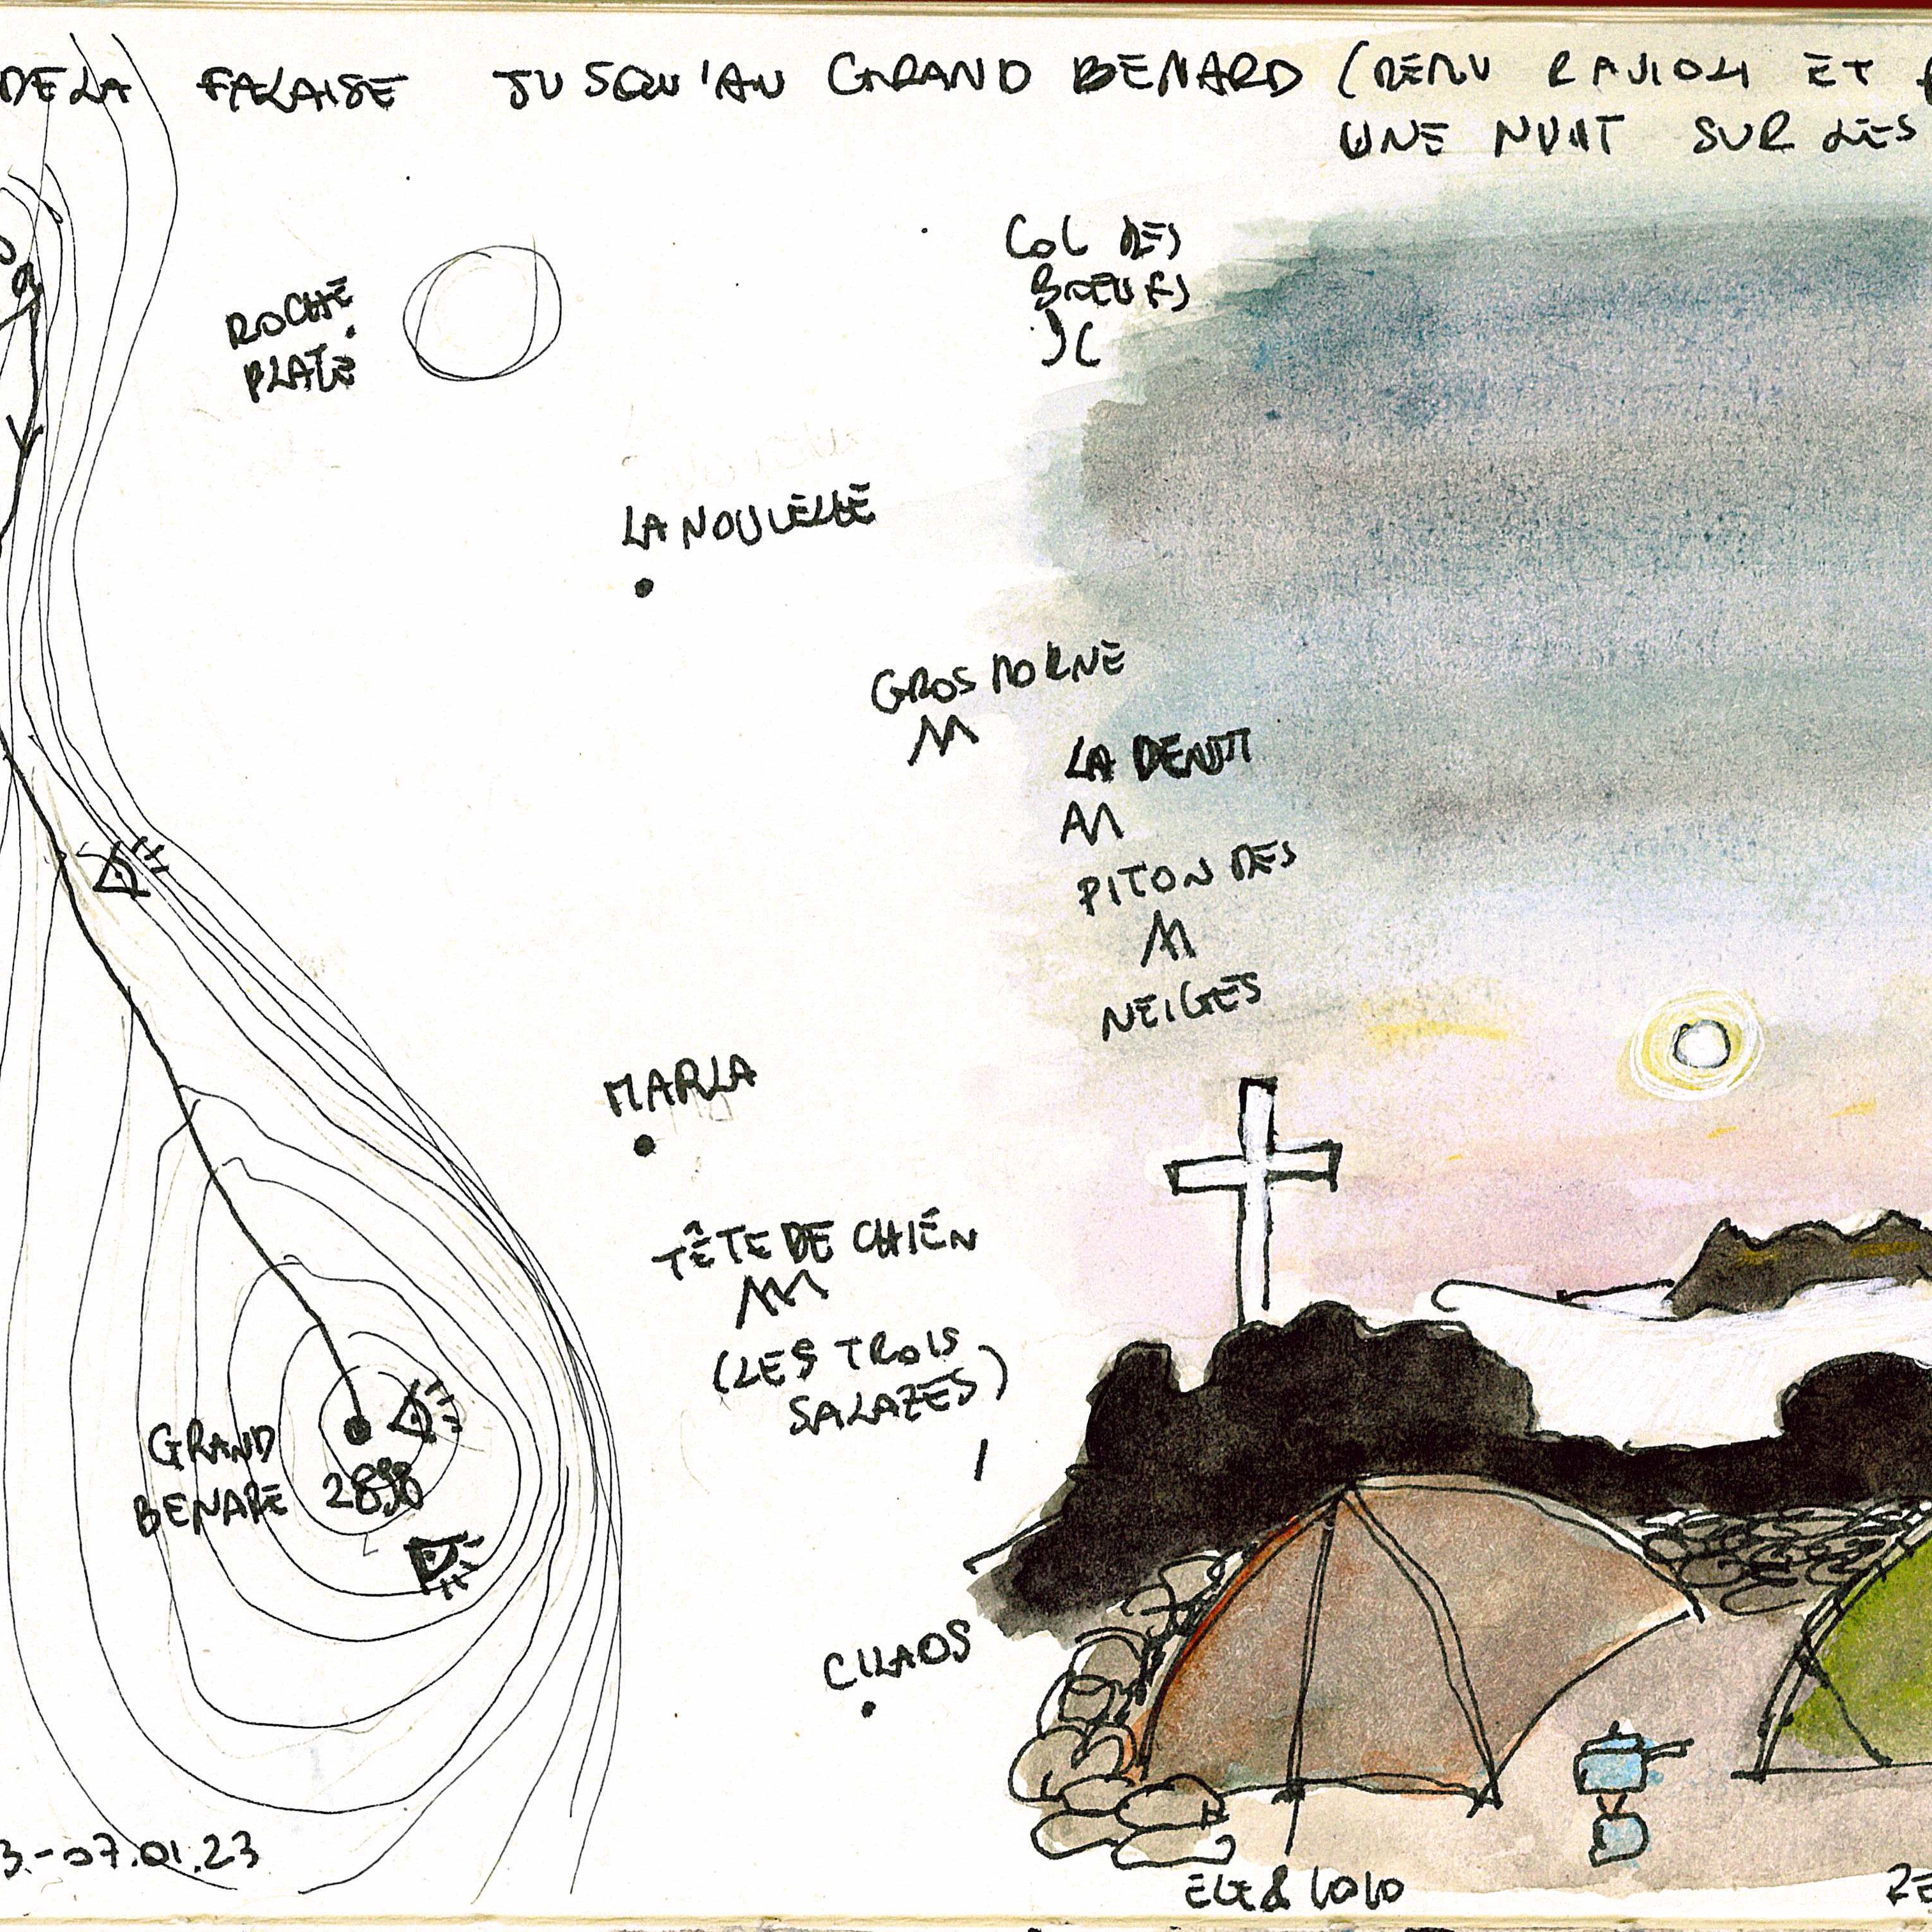 DE LA FALAISE JUSQU'AU GRAND BENARD (MENU RAVIOLI ET
UNE NUIT SUR LES
COL DES
BOEUFS
ROCHE
PLATE
LA NOUVELLE
GROS MORNE
LA DENT
PITON DES
NEIGES
MARLA
TÊTE DE CHIEN
(LES TROIS
SALAZES)
GRAND
BENARE
CILAOS
3-07.01.23
ELE & LOLO
RE